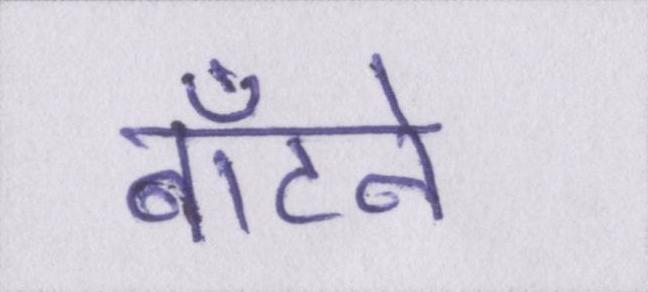 बाँटने